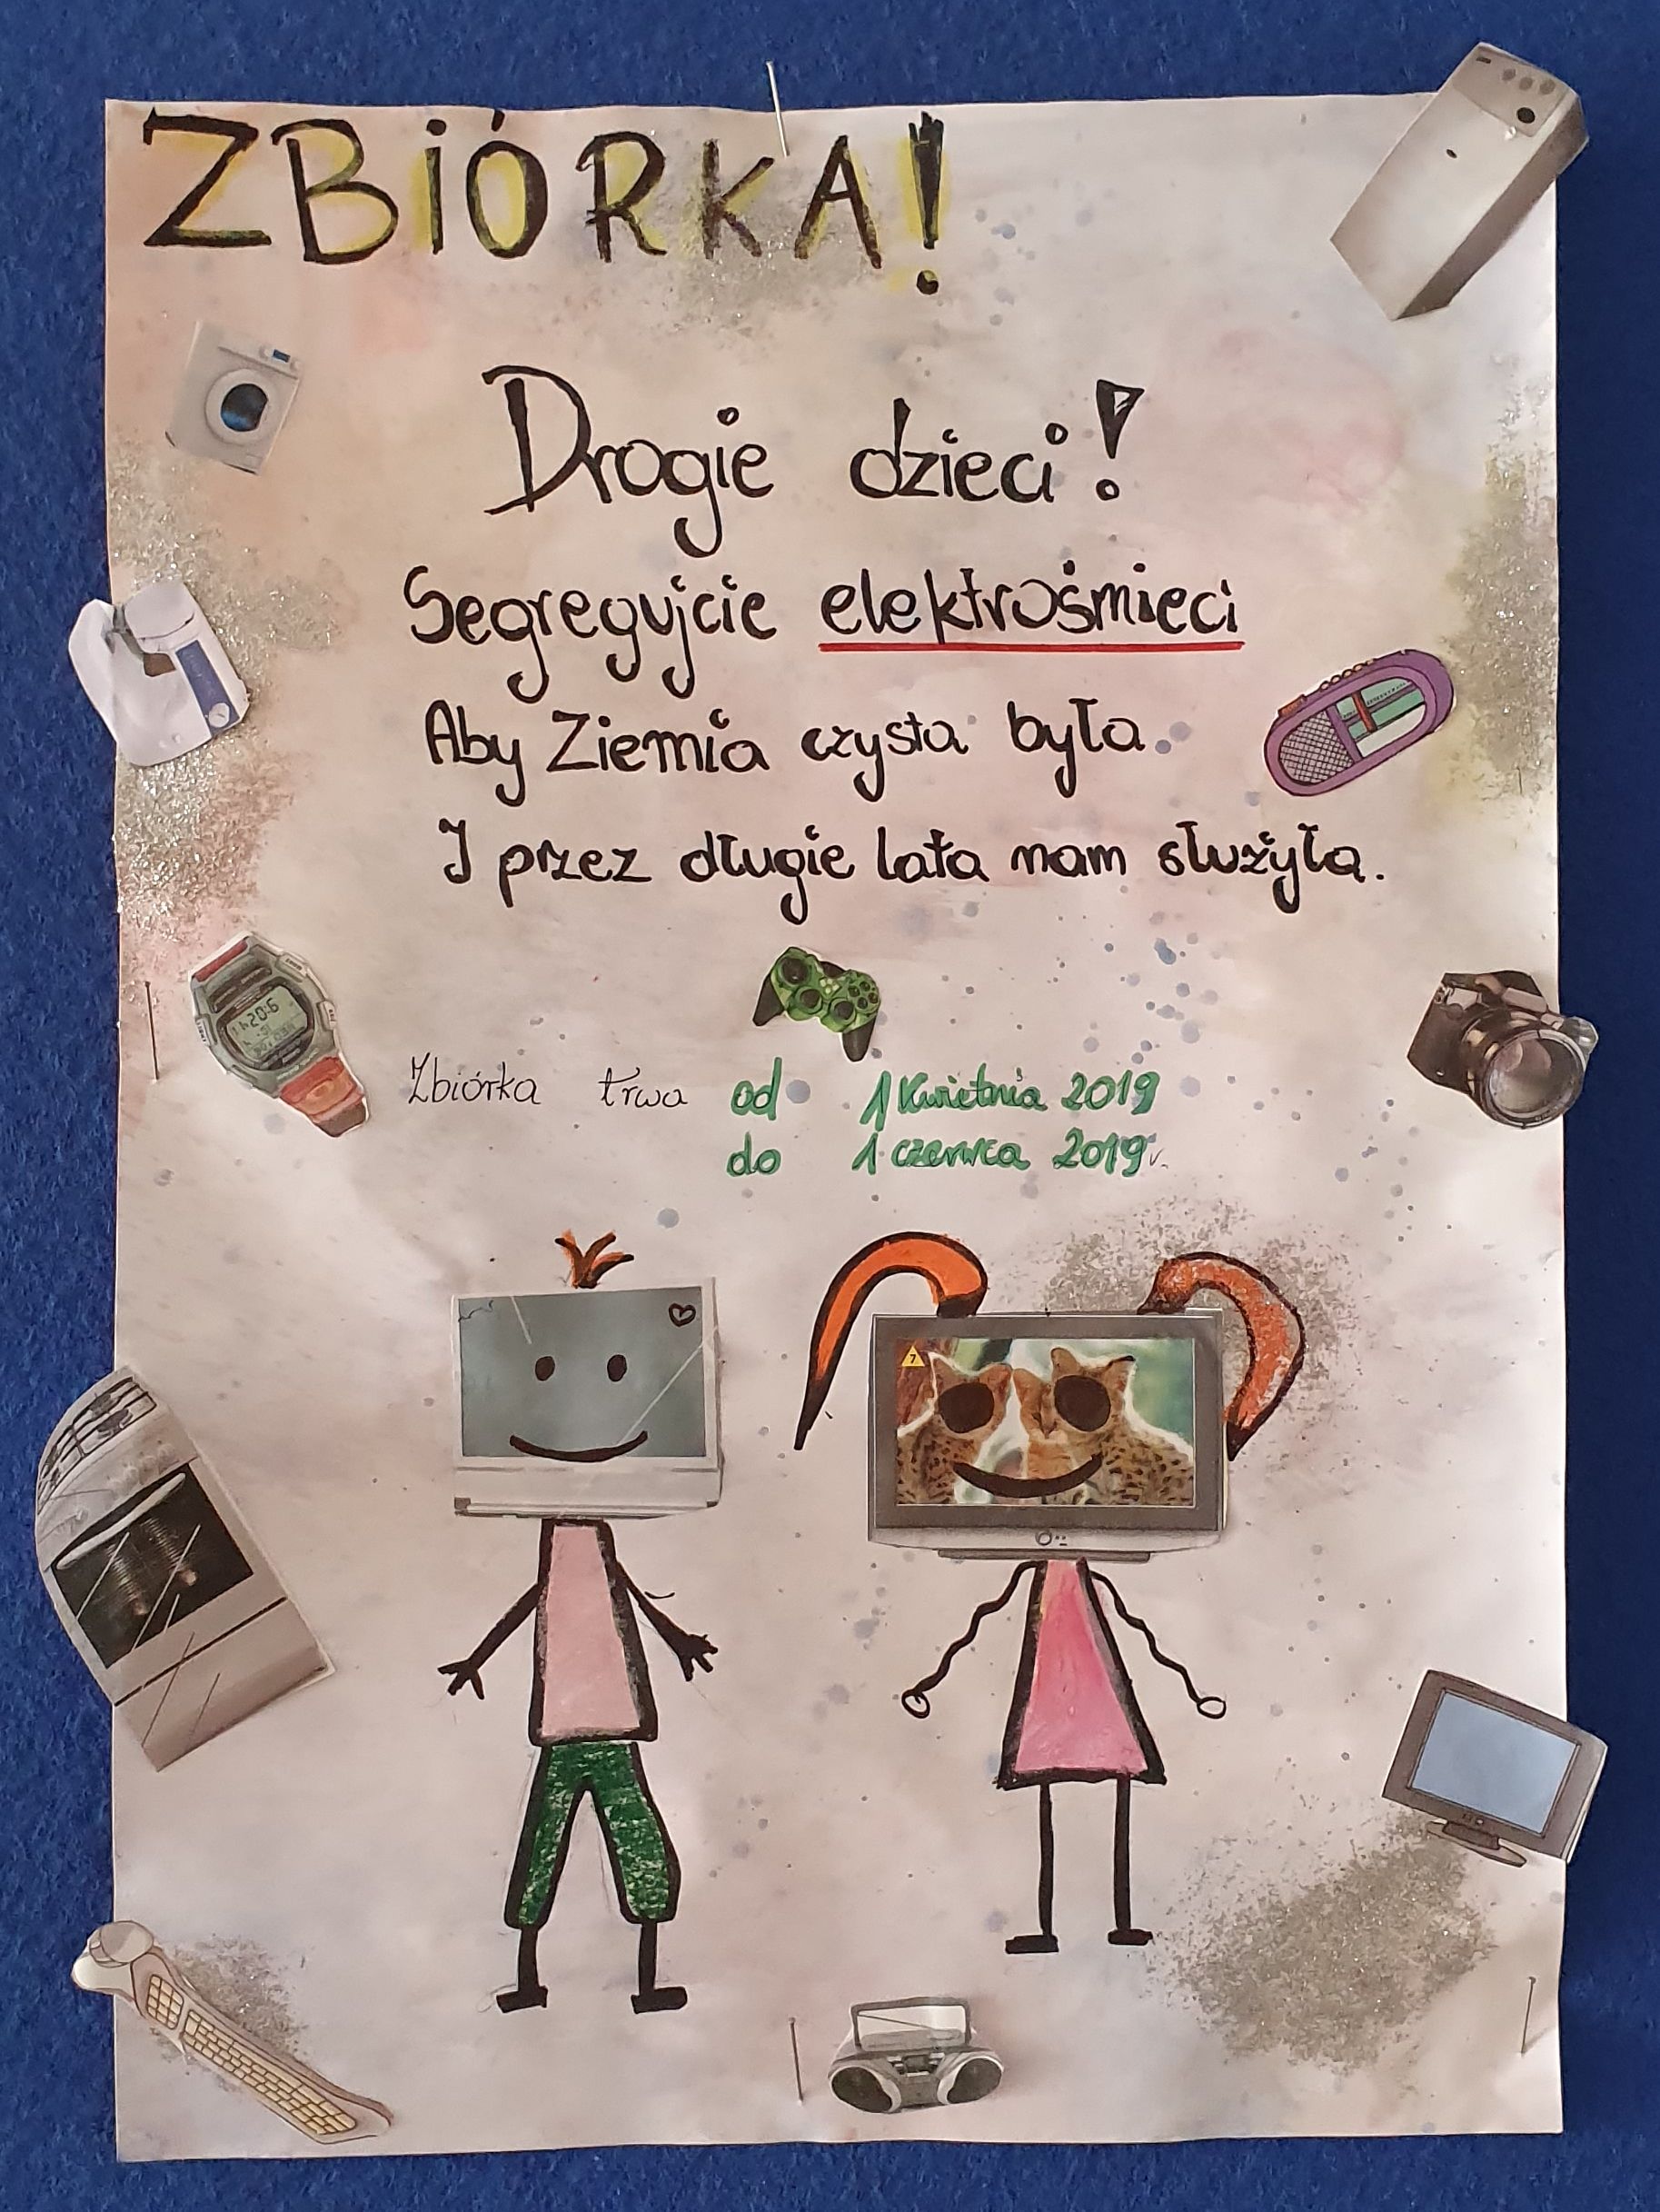 ZBIÓRKA!
Drogie dzieci!
Segregujcie elektrośmieci
Aby Ziemia czysta była.
I przez długie lata nam służyła.
Zbiórka trwa od 1 Kwietnia 2019
do 1 czerwca 2019r.
7